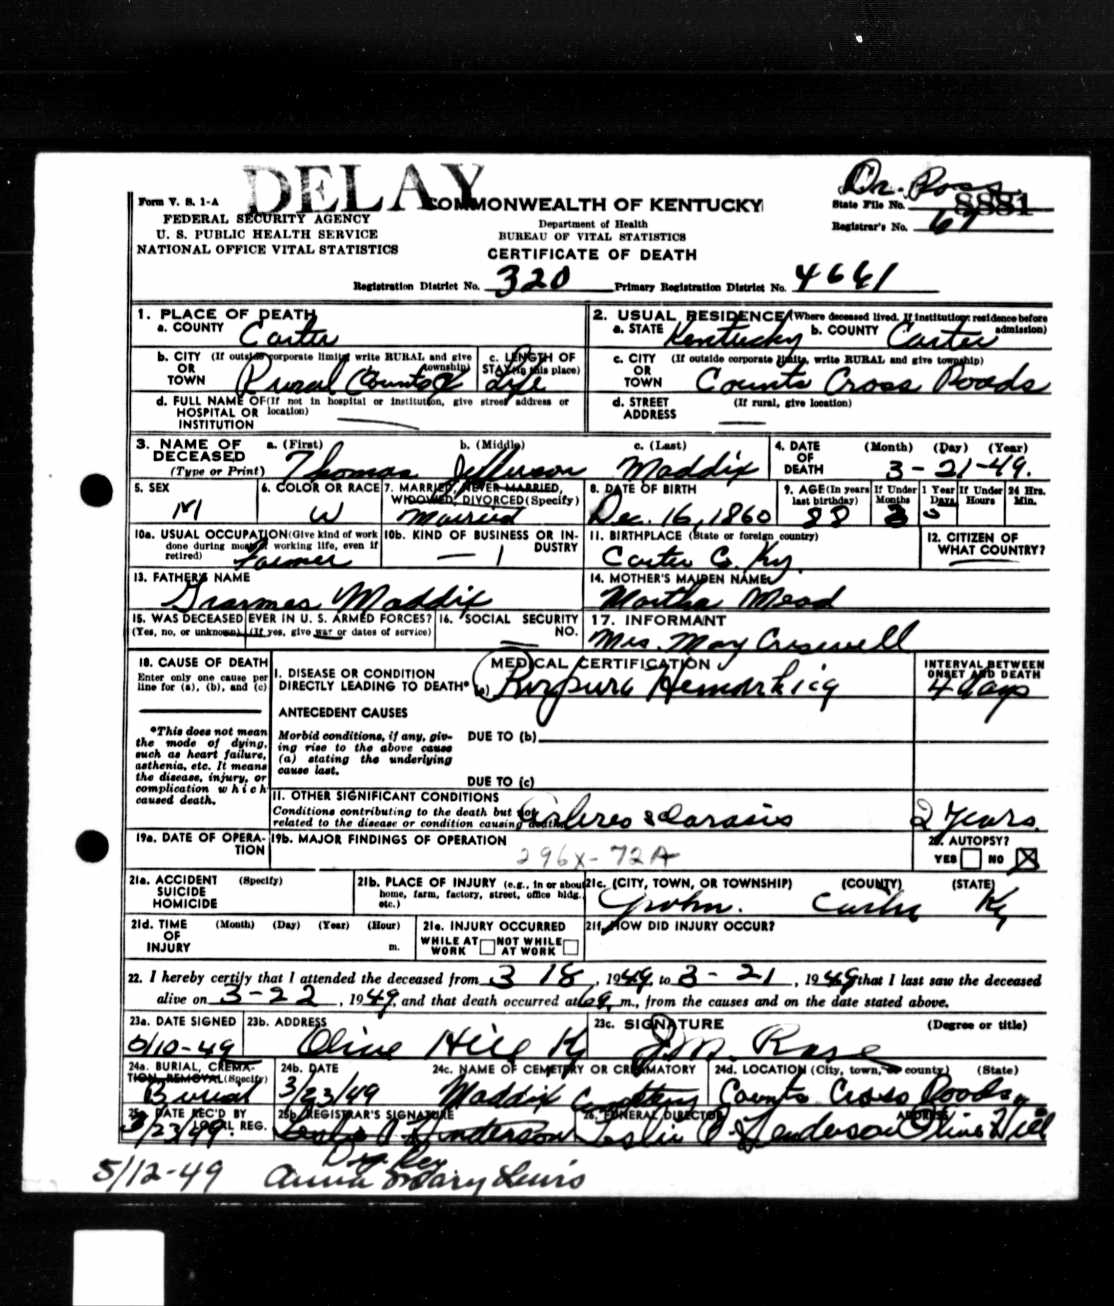 DELAY
Dr. Ross
Form V. S. 1-A
FEDERAL SECURITY AGENCY
U. S. PUBLIC HEALTH SERVICE
NATIONAL OFFICE VITAL STATISTICS
COMMONWEALTH OF KENTUCKY
Department of Health
BUREAU OF VITAL STATISTICS
CERTIFICATE OF DEATH
State File No. 8881
Registrar's No. 67
Registration District No. 320 Primary Registration District No. 4661
1. PLACE OF DEATH
a. COUNTY Carter
2. USUAL RESIDENCE (Where deceased lived. If institution: residence before admission)
a. STATE Kentucky b. COUNTY Carter
b. CITY (If outside corporate limits, write RURAL and give township)
OR
TOWN Rural Counts
c. LENGTH OF STAY (in this place) Life
c. CITY (If outside corporate limits, write RURAL and give township)
OR
TOWN Counts Cross Roads
d. FULL NAME OF (If not in hospital or institution, give street address or location)
HOSPITAL OR
INSTITUTION —
d. STREET ADDRESS (If rural, give location) —
3. NAME OF DECEASED (Type or Print)
a. (First) Thomas b. (Middle) Jefferson c. (Last) Maddix
4. DATE OF DEATH (Month) (Day) (Year) 3-21-49.
5. SEX M
6. COLOR OR RACE W
7. MARRIED, NEVER MARRIED, WIDOWED, DIVORCED (Specify) Married
8. DATE OF BIRTH Dec. 16, 1860
9. AGE (In years last birthday) 88
If Under 1 Year Months 3 Days
If Under 24 Hrs. Hours Min.
10a. USUAL OCCUPATION (Give kind of work done during most of working life, even if retired) Farmer
10b. KIND OF BUSINESS OR INDUSTRY —
11. BIRTHPLACE (State or foreign country) Carter Co. Ky.
12. CITIZEN OF WHAT COUNTRY?
13. FATHER'S NAME Maddix
14. MOTHER'S MAIDEN NAME Martha Mead
15. WAS DECEASED EVER IN U. S. ARMED FORCES? (Yes, no, or unknown) (If yes, give war or dates of service)
16. SOCIAL SECURITY NO. —
17. INFORMANT Mrs. May Creswell
18. CAUSE OF DEATH
Enter only one cause per line for (a), (b), and (c)
MEDICAL CERTIFICATION
INTERVAL BETWEEN ONSET AND DEATH
I. DISEASE OR CONDITION
DIRECTLY LEADING TO DEATH* (a) Purpura Hemorhicg 4 days
ANTECEDENT CAUSES
*This does not mean the mode of dying, such as heart failure, asthenia, etc. It means the disease, injury, or complication which caused death.
Morbid conditions, if any, giving rise to the above cause (a) stating the underlying cause last.
DUE TO (b)
DUE TO (c)
II. OTHER SIGNIFICANT CONDITIONS
Conditions contributing to the death but not related to the disease or condition causing death. 2 Years.
19a. DATE OF OPERATION
19b. MAJOR FINDINGS OF OPERATION
296X-72A
20. AUTOPSY?
YES NO X
21a. ACCIDENT SUICIDE HOMICIDE (Specify)
21b. PLACE OF INJURY (e.g., in or about home, farm, factory, street, office bldg. etc.)
21c. (CITY, TOWN, OR TOWNSHIP) (COUNTY) (STATE)
Grahn. Carter Ky
21d. TIME OF INJURY (Month) (Day) (Year) (Hour) m.
21e. INJURY OCCURRED
WHILE AT WORK NOT WHILE AT WORK
21f. HOW DID INJURY OCCUR?
22. I hereby certify that I attended the deceased from 3 18, 1949, to 3-21, 1949 that I last saw the deceased
alive on 3-22, 1949, and that death occurred at m., from the causes and on the date stated above.
23a. DATE SIGNED 5/10-49
23b. ADDRESS Olive Hill Ky
23c. SIGNATURE (Degree or title) J M. Rose
24a. BURIAL, CREMATION, REMOVAL (Specify) Burial
24b. DATE 3/23/49
24c. NAME OF CEMETERY OR CREMATORY Maddix Cemetery
24d. LOCATION (City, town, or county) (State) Counts Cross Roads
25a. DATE REC'D BY LOCAL REG. 3/23/49.
25b. REGISTRAR'S SIGNATURE Leslie O Henderson
26. FUNERAL DIRECTOR ADDRESS Leslie O. Henderson Olive Hill
5/12-49 Anna Mary Lewis